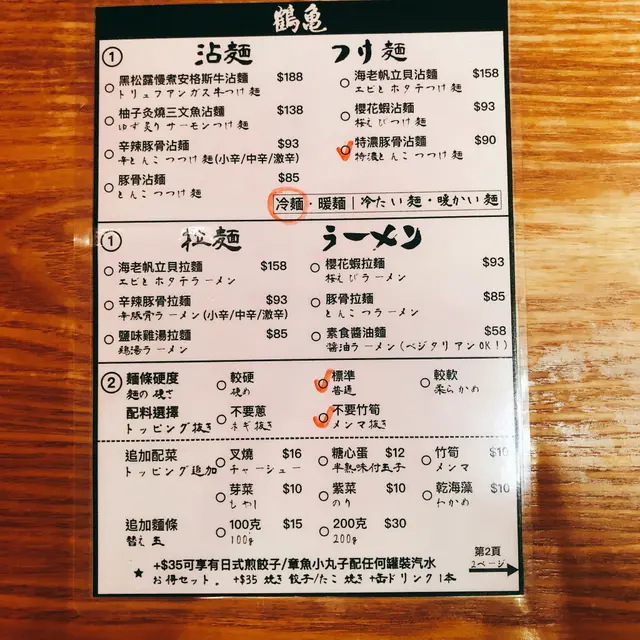 鶴亀
① 沾麵 つけ麺
黑松露慢煮安格斯牛沾麵 $188
トリュフアンガス牛つけ麺
海老帆立貝沾麵 $158
エビとホタテつけ麺
柚子炙燒三文魚沾麵 $138
ゆず炙りサーモンつけ麺
櫻花蝦沾麵 $93
桜えびつけ麺
辛辣豚骨沾麵 $93
辛とんこつつけ麺(小辛/中辛/激辛)
特濃豚骨沾麵 $90
特濃とんこつつけ麺
豚骨沾麵 $85
とんこつつけ麺
冷麵・暖麵|冷たい麺・暖かい麺
① 拉麵 ラーメン
海老帆立貝拉麵 $158
エビとホタテラーメン
櫻花蝦拉麵 $93
桜えびラーメン
辛辣豚骨拉麵 $93
辛豚骨ラーメン(小辛/中辛/激辛)
豚骨拉麵 $85
とんこつラーメン
鹽味雞湯拉麵 $85
鶏湯ラーメン
素食醬油麵 $58
醤油ラーメン(ベジタリアンOK!)
② 麵條硬度 較硬 標準 較軟
麺の硬さ 硬め 普通 柔らかめ
配料選擇 不要蔥 不要竹筍
トッピング抜き ネギ抜き メンマ抜き
追加配菜 叉燒 $16 糖心蛋 $12 竹筍 $10
トッピング追加 チャーシュー 半熟味付玉子 メンマ
芽菜 $10 紫菜 $10 乾海藻 $10
もやし のり わかめ
追加麵條 100克 $15 200克 $30
替え玉 100g 200g
★ +$35可享有日式煎餃子/章魚小丸子配任何罐裝汽水
お得セット。 +$35 焼き餃子/たこ焼き+缶ドリンク1本
第2頁
2ページ